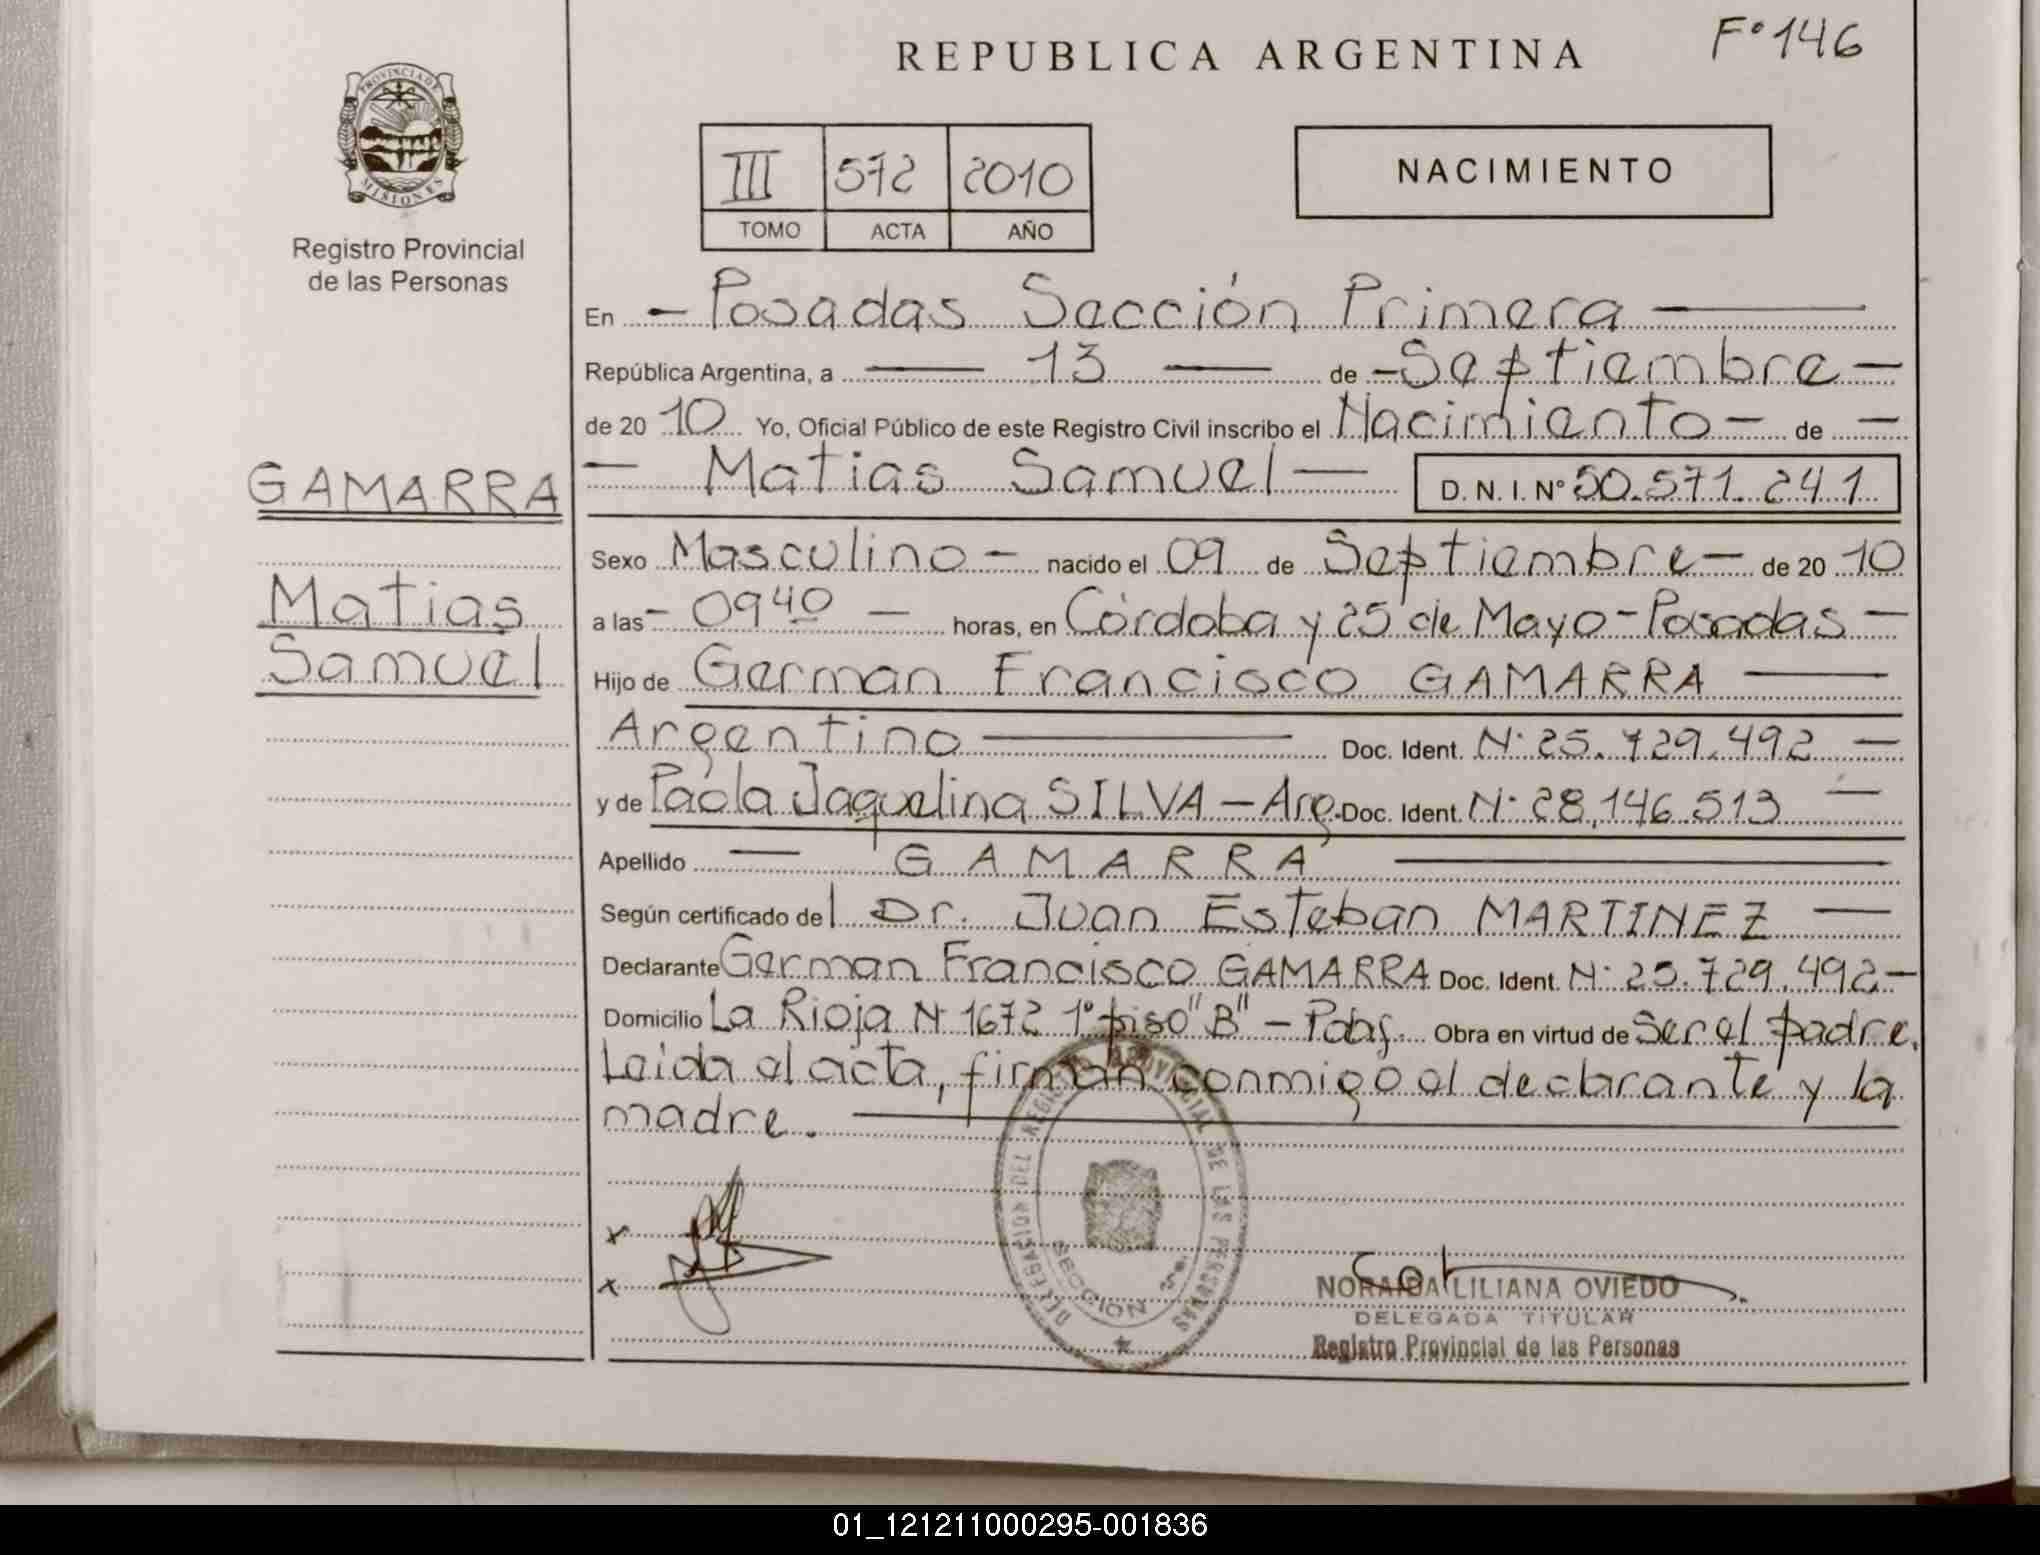 F° 146
REPUBLICA ARGENTINA
PROVINCIA DE
MISIONES
Registro Provincial
de las Personas
III 572 2010
TOMO ACTA AÑO
NACIMIENTO
En - Posadas Sección Primera
República Argentina, a 13 de - Septiembre -
de 20 10 Yo, Oficial Público de este Registro Civil inscribo el Nacimiento - de -
GAMARRA
Matias
Samuel
- Matias Samuel - D. N. I. N° 50.571.241
Sexo Masculino - nacido el 09 de Septiembre - de 20 10
a las - 09 40 - horas, en Córdoba y 25 de Mayo - Posadas -
Hijo de German Francisco GAMARRA
Argentino Doc. Ident. N· 25.729.492 -
y de Paola Jaquelina SILVA - Arg. Doc. Ident. N· 28.146.513 -
Apellido - GAMARRA
Según certificado del Dr. Juan Esteban MARTINEZ -
Declarante German Francisco GAMARRA Doc. Ident. N· 25.729.492 -
Domicilio La Rioja N· 1672 1° piso "B" - Pdas. Obra en virtud de Ser el padre.
Leida el acta, firman conmigo el declarante y la
madre.
x
x
DELEGACION DEL REGISTRO PROVINCIAL DE LAS PERSONAS
SECCION
NORAIDA LILIANA OVIEDO
DELEGADA TITULAR
Registro Provincial de las Personas
01_121211000295-001836